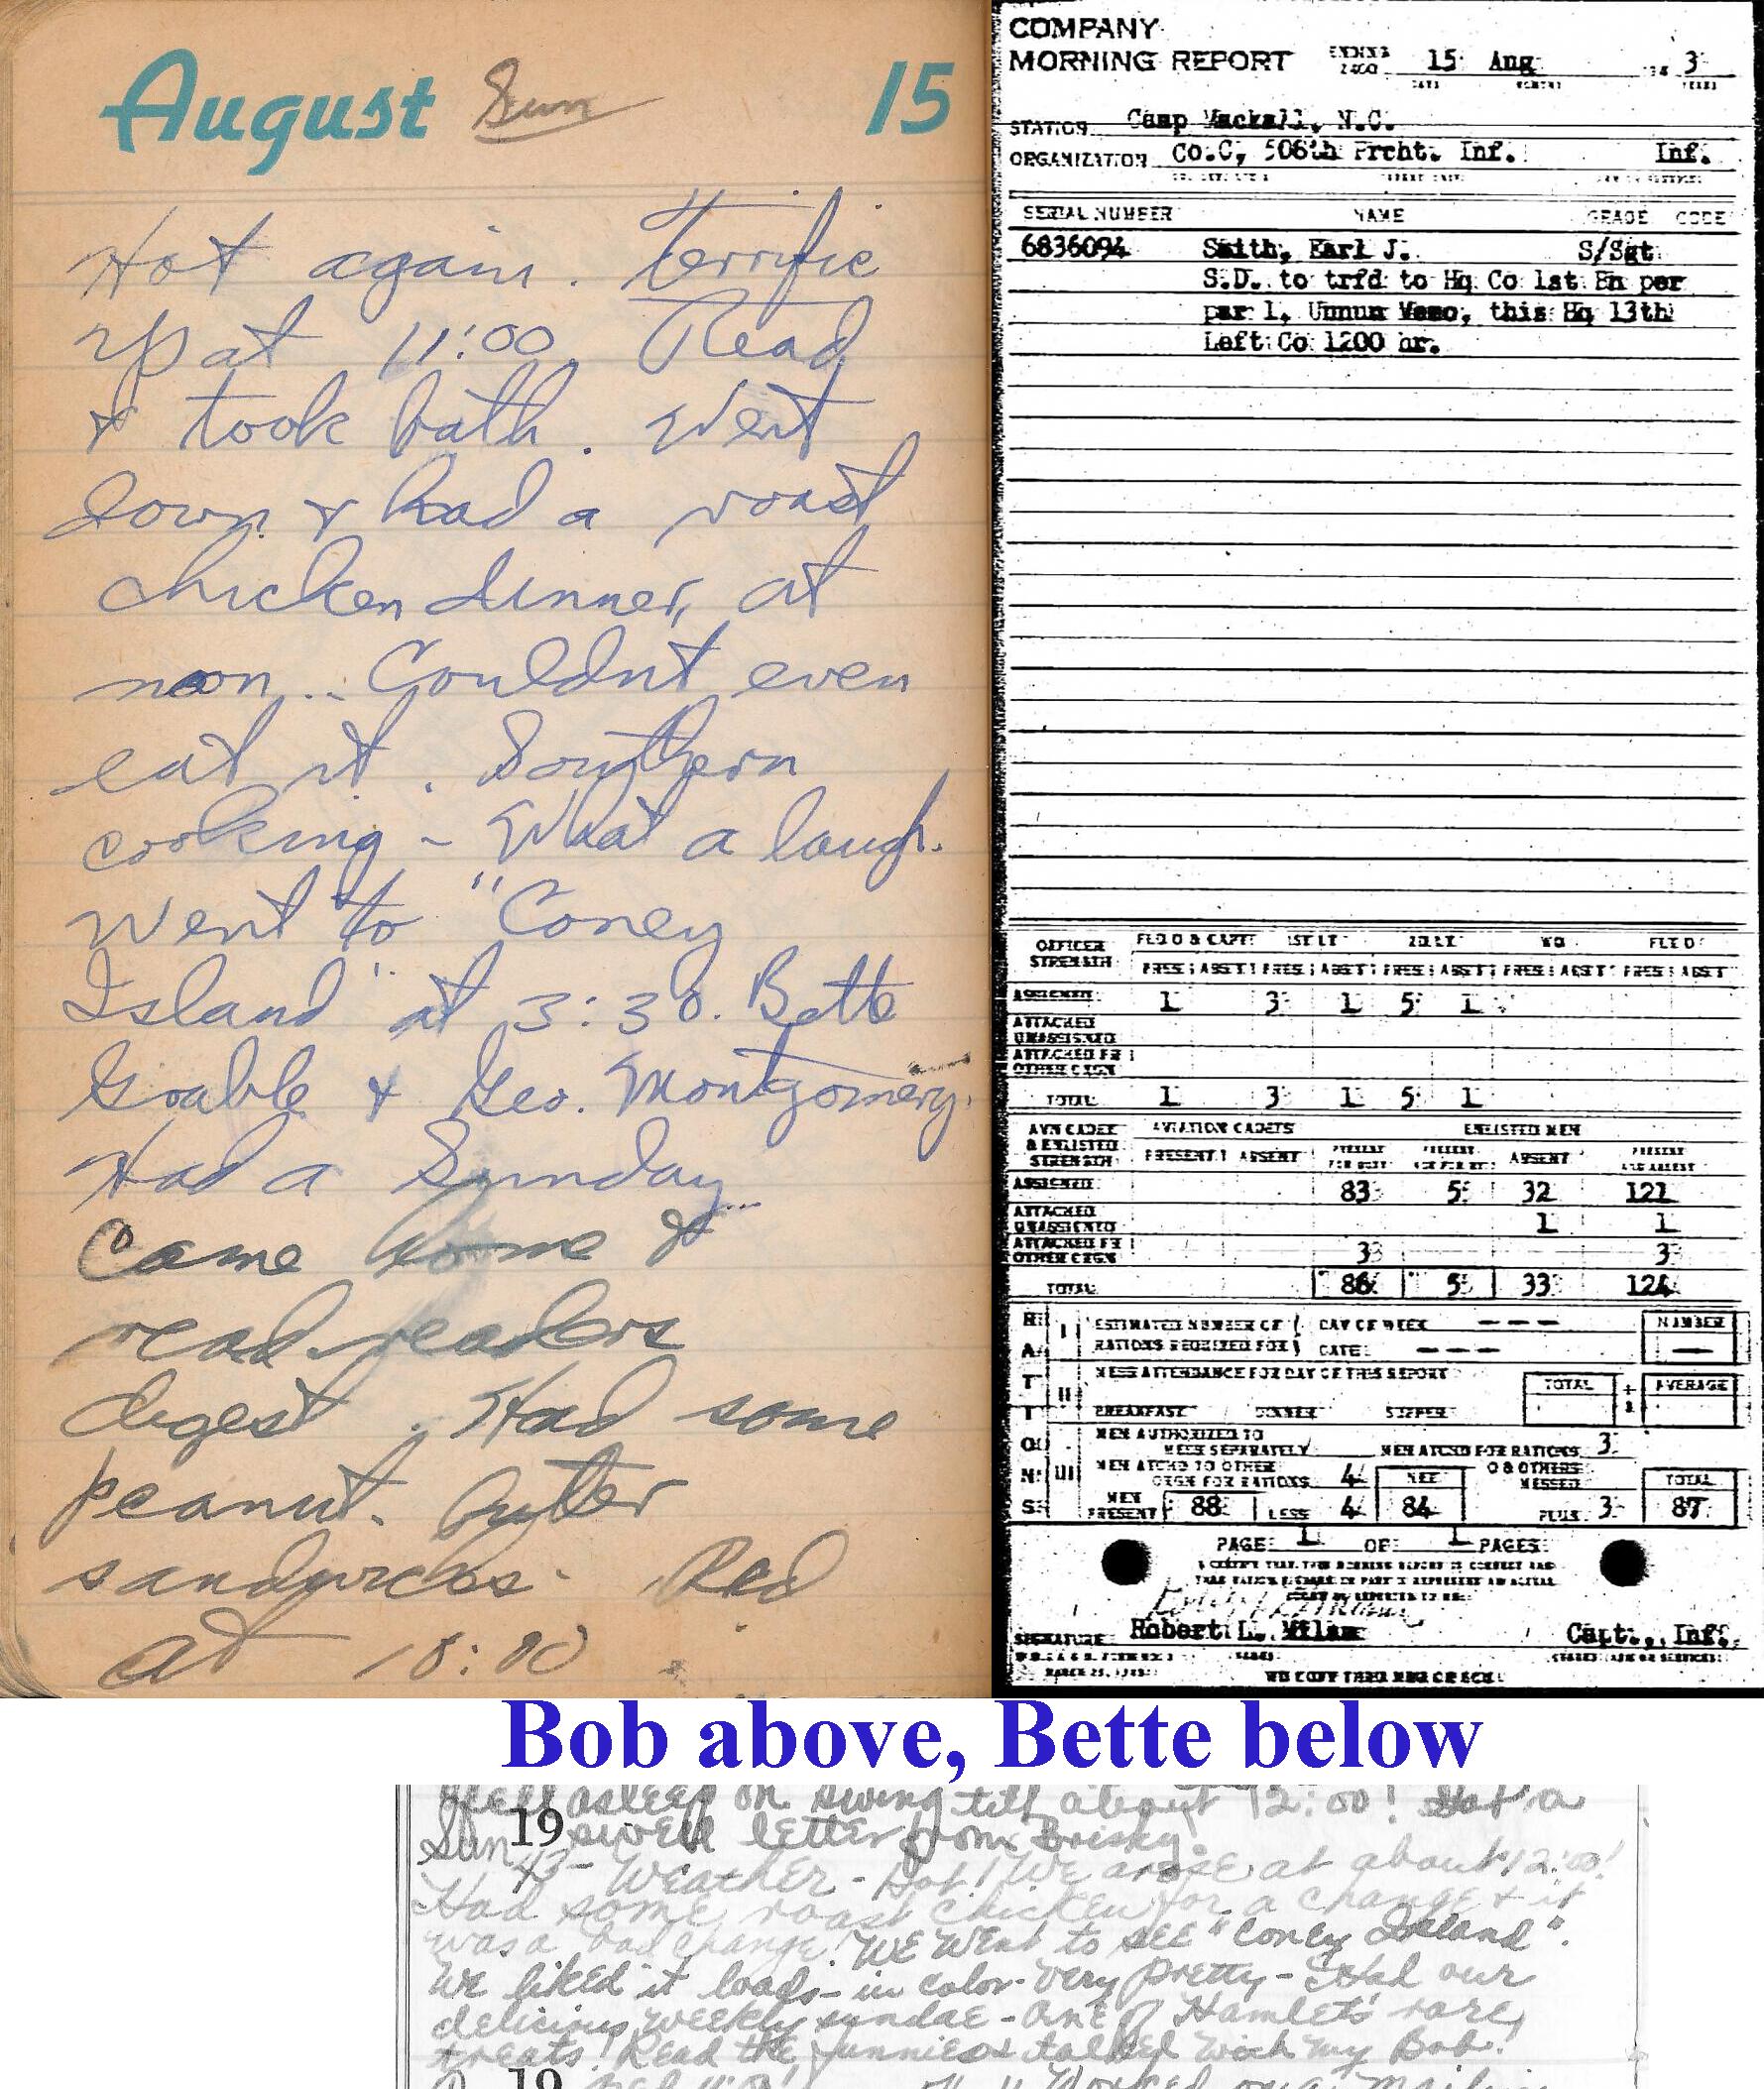 August Sun 15
Hot again. Terrific
up at 11:00. Read
& took bath. Went
down & had a roast
chicken dinner, at
noon.. Couldnt even
eat it. Southern
cooking - What a laugh.
Went to "Coney
Island" at 3:30. Bette
Grable & Geo. Montgomery.
Had a Sunday...
Came home &
read readers
digest. Had some
peanut butter
sandwiches. Bed
at 10:00.
COMPANY
MORNING REPORT ENDING 2400 15 Aug 194 3
STATION Camp Mackall, N.C.
ORGANIZATION Co.C, 506th Prcht. Inf. Inf.
SERIAL NUMBER NAME GRADE CODE
6836094 Smith, Earl J. S/Sgt
S.D. to trfd to Hq Co 1st Bn per
par 1, Unnum Memo, this Hq 13th
Left Co 1200 hr.
OFFICER STRENGTH FLD O & CAPT 1ST LT 2D LT WO FLT O
PRES ABST PRES ABST PRES ABST PRES ABST PRES ABST
ASSIGNED 1 3 1 5 1
ATTACHED UNASSIGNED
ATTACHED FR OTHER ORGN
TOTAL 1 3 1 5 1
AVN CADET & ENLISTED STRENGTH AVIATION CADETS ENLISTED MEN
PRESENT ABSENT PRESENT FOR DUTY PRESENT NOT FOR DUTY ABSENT PRESENT AND ABSENT
ASSIGNED 83 5 32 121
ATTACHED UNASSIGNED 1 1
ATTACHED FR OTHER ORGN 3 3
TOTAL 86 5 33 124
RATIONS
I ESTIMATED NUMBER OF RATIONS REQUIRED FOR DAY OF WEEK --- DATE --- NUMBER —
II MESS ATTENDANCE FOR DAY OF THIS REPORT
BREAKFAST DINNER SUPPER TOTAL AVERAGE
III MEN AUTHORIZED TO MESS SEPARATELY MEN ATCHD FOR RATIONS 3
MEN ATCHD TO OTHER ORGN FOR RATIONS 4 NET O & OTHERS MESSED TOTAL
MEN PRESENT 88 LESS 4 84 PLUS 3 87
PAGE 1 OF 1 PAGES
I CERTIFY THAT THIS MORNING REPORT IS CORRECT AND
SIGNATURE Robert L. Milam Capt., Inf.
Bob above, Bette below
fell asleep on swing till about 12:00! Got a
Sun 19 swell letter from Brisky.
43 - Weather - Hot! We arose at about 12:00!
Had some roast chicken for a change & it
was a bad change! We went to see "Coney Island".
We liked it loads - in color - very pretty - Had our
delicious weekly sundae - one of Hamlet's rare
treats! Read the funnies & talked with my Bob!
19